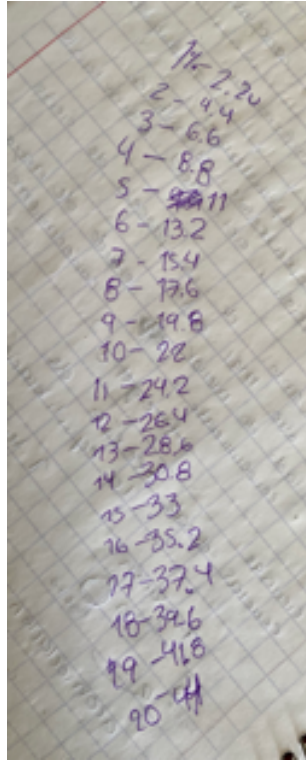 1% - 2.20
2 - 4.4
3 - 6.6
4 - 8.8
5 - 11
6 - 13.2
7 - 15.4
8 - 17.6
9 - 19.8
10 - 22
11 - 24.2
12 - 26.4
13 - 28.6
14 - 30.8
15 - 33
16 - 35.2
17 - 37.4
18 - 39.6
19 - 41.8
20 - 44